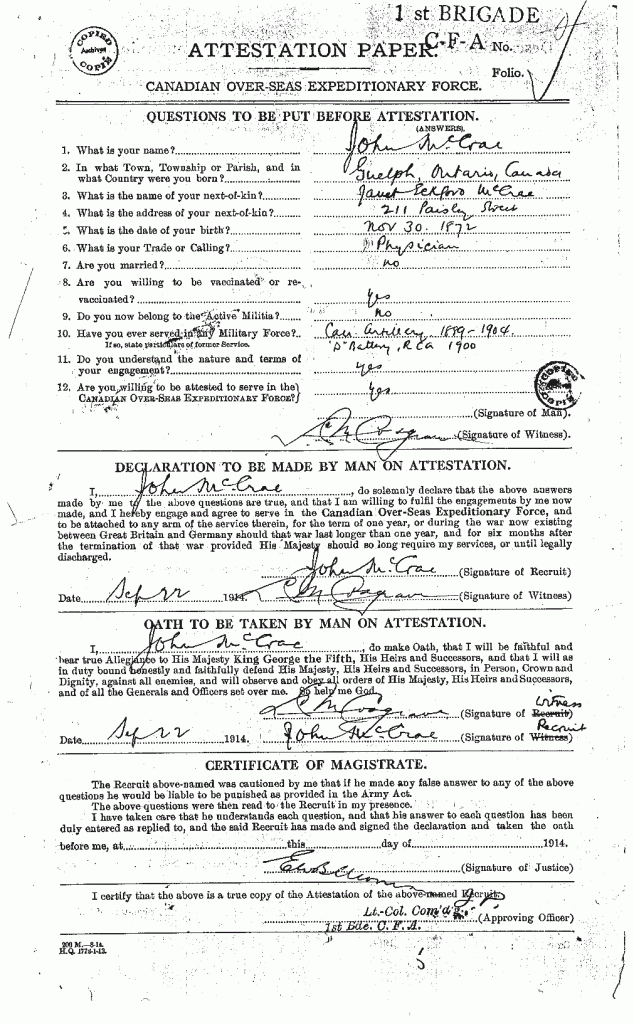 1 st BRIGADE
C-F-A
COPIED
Archives
COPIE
ATTESTATION PAPER. No.
Folio.
CANADIAN OVER-SEAS EXPEDITIONARY FORCE.
QUESTIONS TO BE PUT BEFORE ATTESTATION.
(ANSWERS).
1. What is your name? John McCrae
2. In what Town, Township or Parish, and in
what Country were you born? Guelph, Ontario, Canada
3. What is the name of your next-of-kin? Janet Eckford McCrae
4. What is the address of your next-of-kin? 211 Paisley Street
5. What is the date of your birth? Nov 30. 1872
6. What is your Trade or Calling? Physician
7. Are you married? no
8. Are you willing to be vaccinated or re-
vaccinated? Yes
9. Do you now belong to the Active Militia? no
10. Have you ever served in any Military Force? Can Artillery 1889-1904.
If so, state particulars of former Service. "D" Battery, RCA 1900
11. Do you understand the nature and terms of
your engagement? Yes
12. Are you willing to be attested to serve in the
CANADIAN OVER-SEAS EXPEDITIONARY FORCE? Yes
COPIED
COPIE
(Signature of Man).
(Signature of Witness).
DECLARATION TO BE MADE BY MAN ON ATTESTATION.
I, John McCrae, do solemnly declare that the above answers
made by me to the above questions are true, and that I am willing to fulfil the engagements by me now
made, and I hereby engage and agree to serve in the Canadian Over-Seas Expeditionary Force, and
to be attached to any arm of the service therein, for the term of one year, or during the war now existing
between Great Britain and Germany should that war last longer than one year, and for six months after
the termination of that war provided His Majesty should so long require my services, or until legally
discharged.
John McCrae (Signature of Recruit)
Date Sep 22 1914. (Signature of Witness)
OATH TO BE TAKEN BY MAN ON ATTESTATION.
I, John McCrae, do make Oath, that I will be faithful and
bear true Allegiance to His Majesty King George the Fifth, His Heirs and Successors, and that I will as
in duty bound honestly and faithfully defend His Majesty, His Heirs and Successors, in Person, Crown and
Dignity, against all enemies, and will observe and obey all orders of His Majesty, His Heirs and Successors,
and of all the Generals and Officers set over me. So help me God.
witness
(Signature of Recruit)
Recruit
Date Sep 22 1914. John McCrae (Signature of Witness)
CERTIFICATE OF MAGISTRATE.
The Recruit above-named was cautioned by me that if he made any false answer to any of the above
questions he would be liable to be punished as provided in the Army Act.
The above questions were then read to the Recruit in my presence.
I have taken care that he understands each question, and that his answer to each question has been
duly entered as replied to, and the said Recruit has made and signed the declaration and taken the oath
before me, at this day of 1914.
(Signature of Justice)
I certify that the above is a true copy of the Attestation of the above-named Recruit.
Lt.-Col. Com'd'g. (Approving Officer)
1st Bde. C. F. A.
200 M.—8-14.
H.Q. 1772-1-13.